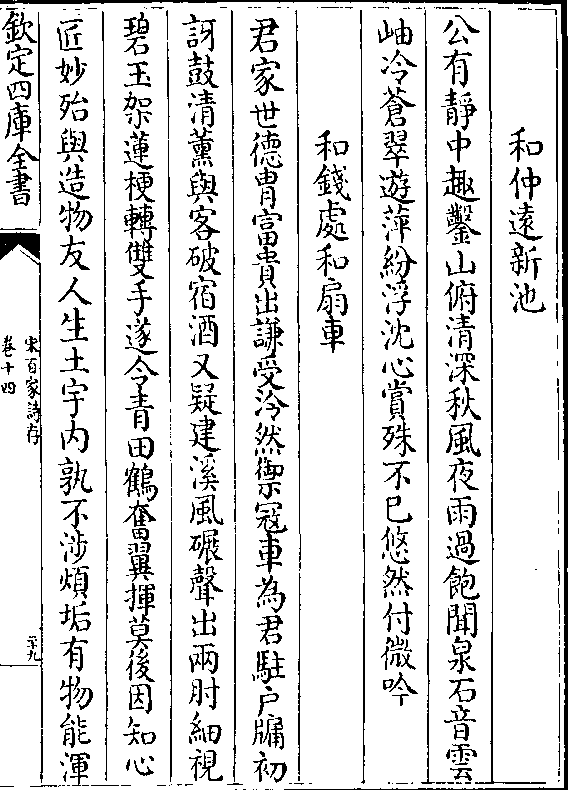 和仲遠新池
公有靜中趣鑿山俯清深秋風夜雨過飽聞泉石音雲
岫冷蒼翠遊萍紛浮沈心賞殊不已悠然付微吟
和錢處和扇車
君家世德胄富貴出謙受泠然禦寇車為君駐户牖初
訝鼓清薰與客破宿酒又疑建溪風碾聲出兩肘細視
碧玉架蓮梗轉雙手遂令青田鶴奮翼揮莫後因知心
匠妙殆與造物友人生土宇内孰不涉煩垢有物能渾
欽定四庫全書
宋百家詩存
卷十四
二十九